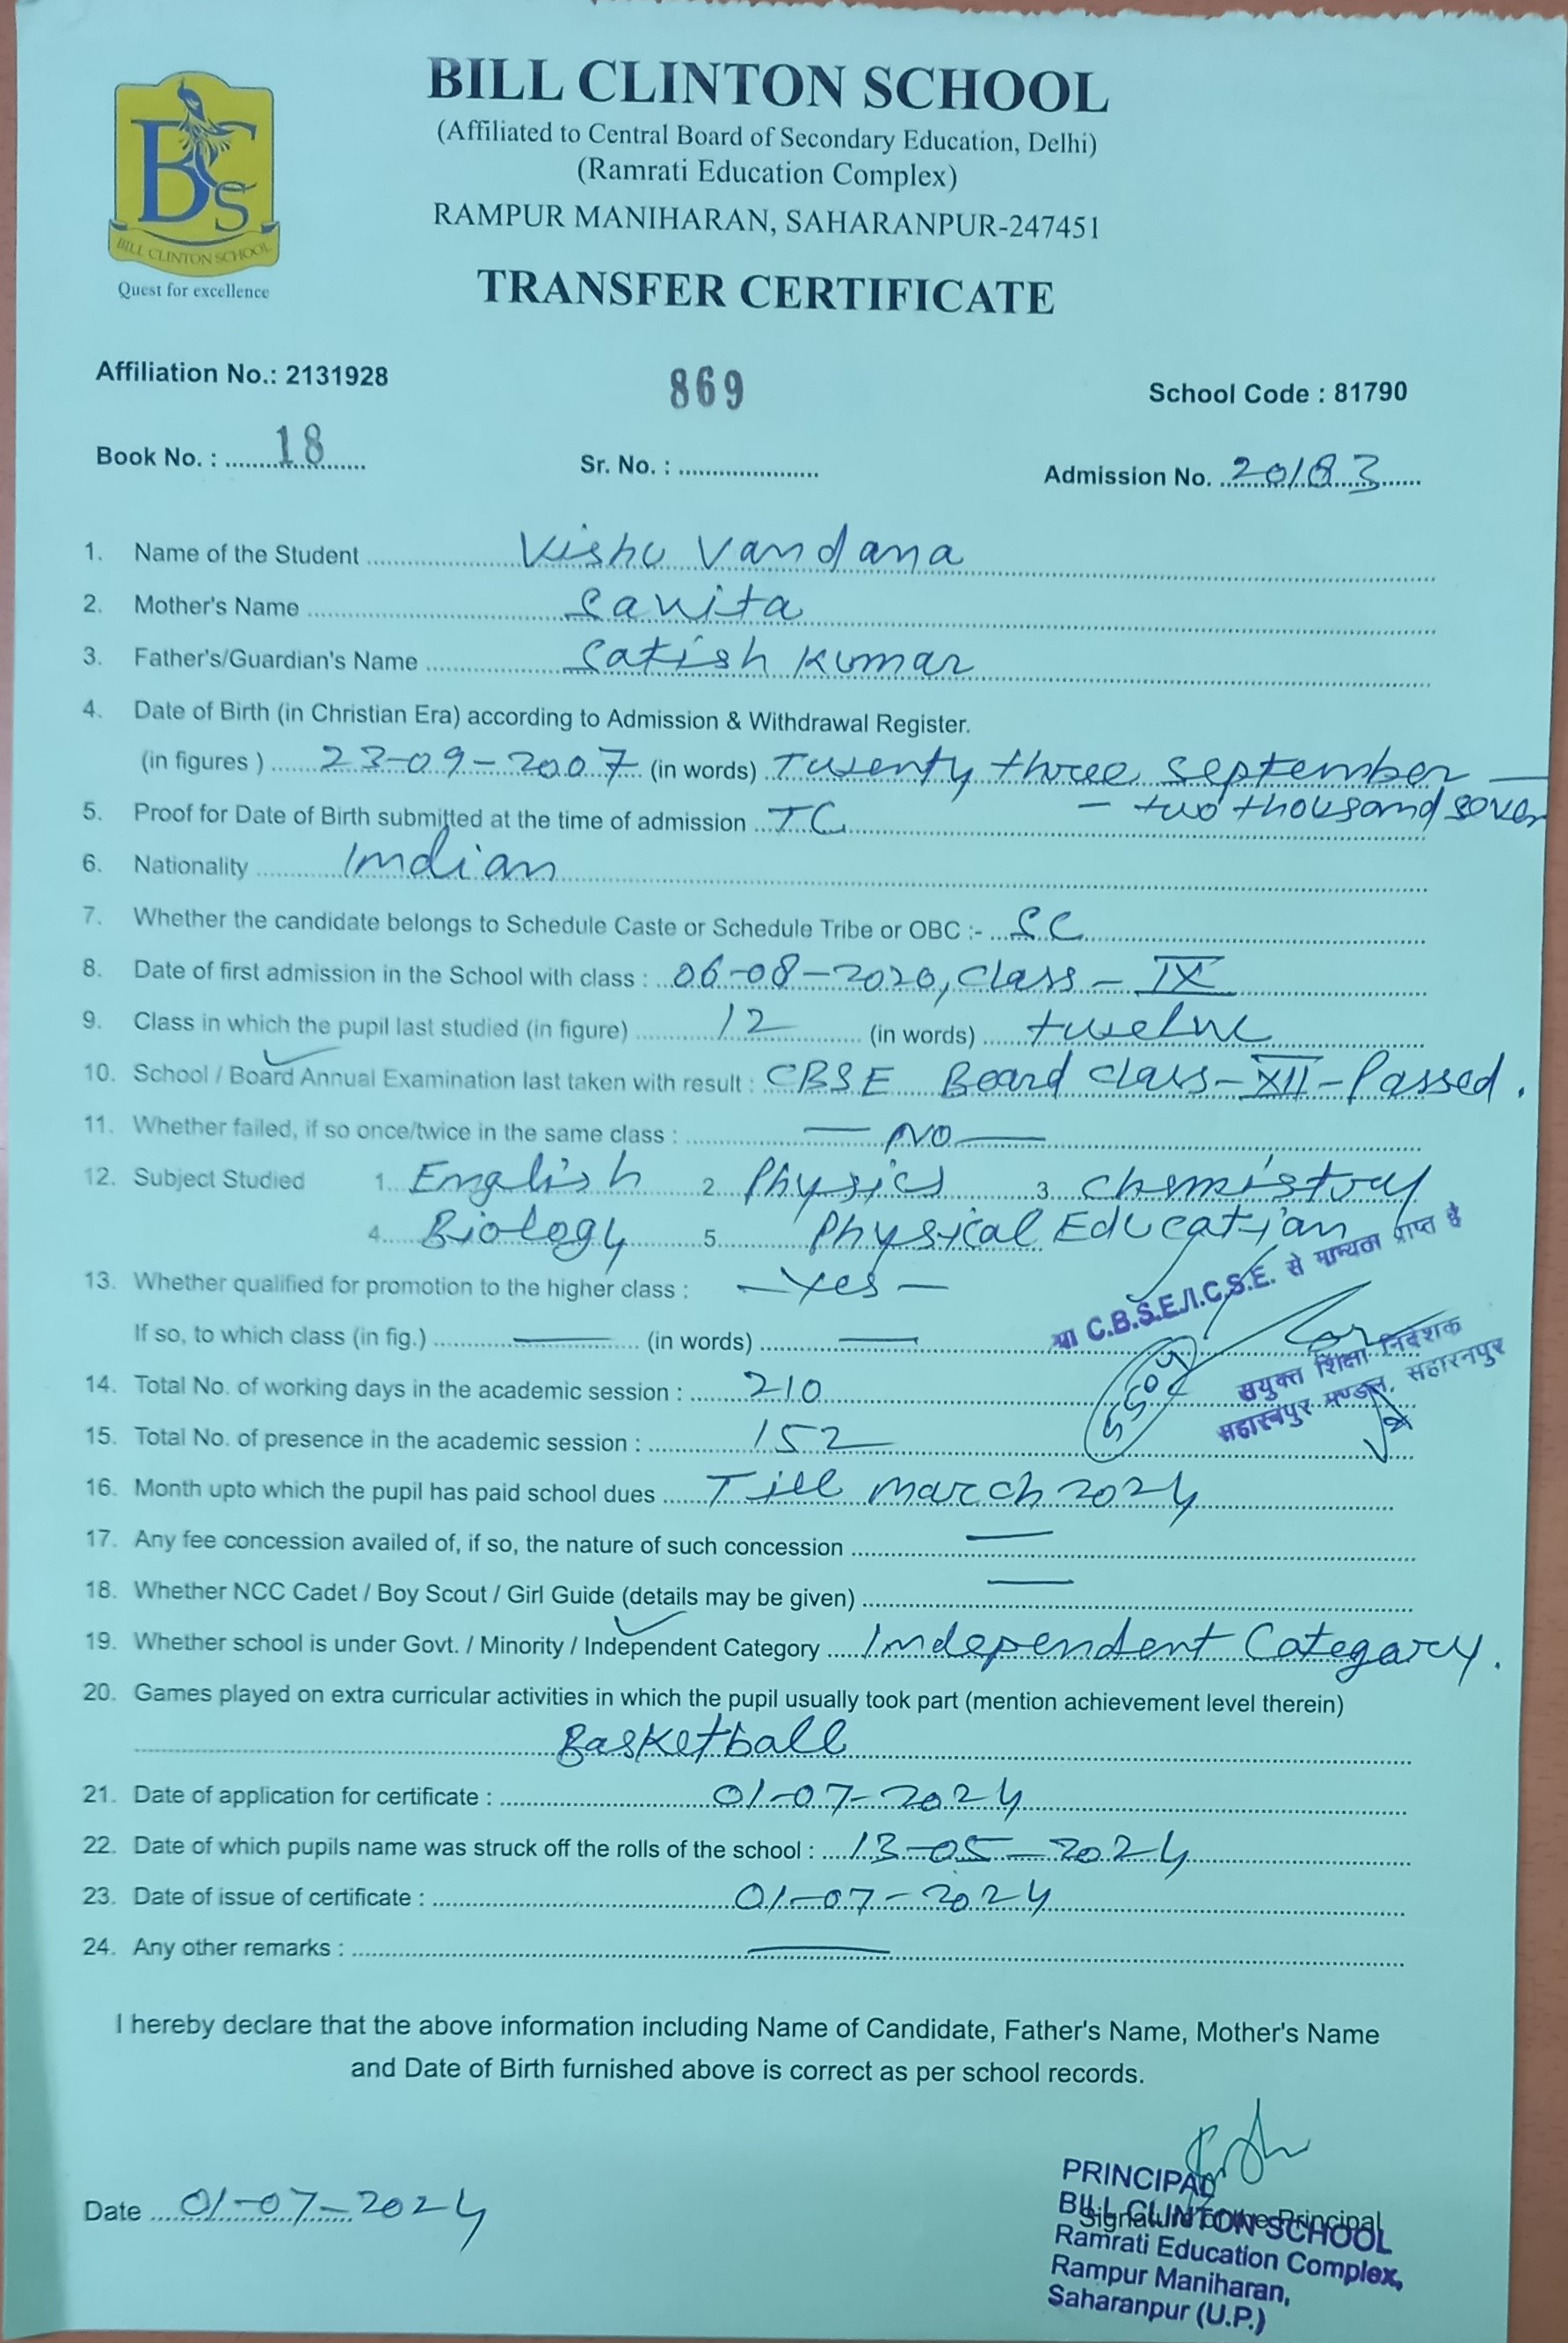 BILL CLINTON SCHOOL
(Affiliated to Central Board of Secondary Education, Delhi)
(Ramrati Education Complex)
RAMPUR MANIHARAN, SAHARANPUR-247451
BCS
BILL CLINTON SCHOOL
Quest for excellence
TRANSFER CERTIFICATE
Affiliation No.: 2131928 869 School Code : 81790
Book No. : 18 Sr. No. : Admission No. 20183
1. Name of the Student Vishu Vandana
2. Mother's Name Savita
3. Father's/Guardian's Name Satish Kumar
4. Date of Birth (in Christian Era) according to Admission & Withdrawal Register.
(in figures ) 23-09-2007 (in words) Twenty three september —
— two thousand seven
5. Proof for Date of Birth submitted at the time of admission TC
6. Nationality Indian
7. Whether the candidate belongs to Schedule Caste or Schedule Tribe or OBC :- SC
8. Date of first admission in the School with class : 06-08-2020, Class - IX
9. Class in which the pupil last studied (in figure) 12 (in words) twelve
10. School / Board Annual Examination last taken with result : CBSE Board class-XII-Passed.
11. Whether failed, if so once/twice in the same class : — NO —
12. Subject Studied 1. English 2. Physics 3. chemistry
4. Biology 5. Physical Education
13. Whether qualified for promotion to the higher class : - Yes -
If so, to which class (in fig.) — (in words) —
या C.B.S.E./I.C.S.E. से मान्यता प्राप्त है
संयुक्त शिक्षा निदेशक
सहारनपुर मण्डल, सहारनपुर
14. Total No. of working days in the academic session : 210
15. Total No. of presence in the academic session : 152
16. Month upto which the pupil has paid school dues Till march 2024
17. Any fee concession availed of, if so, the nature of such concession —
18. Whether NCC Cadet / Boy Scout / Girl Guide (details may be given) —
19. Whether school is under Govt. / Minority / Independent Category Independent Category.
20. Games played on extra curricular activities in which the pupil usually took part (mention achievement level therein)
Basketball
21. Date of application for certificate : 01-07-2024
22. Date of which pupils name was struck off the rolls of the school : 13-05-2024
23. Date of issue of certificate : 01-07-2024
24. Any other remarks : —
I hereby declare that the above information including Name of Candidate, Father's Name, Mother's Name
and Date of Birth furnished above is correct as per school records.
Date 01-07-2024
Signature of the Principal
PRINCIPAL
BILL CLINTON SCHOOL
Ramrati Education Complex,
Rampur Maniharan,
Saharanpur (U.P.)